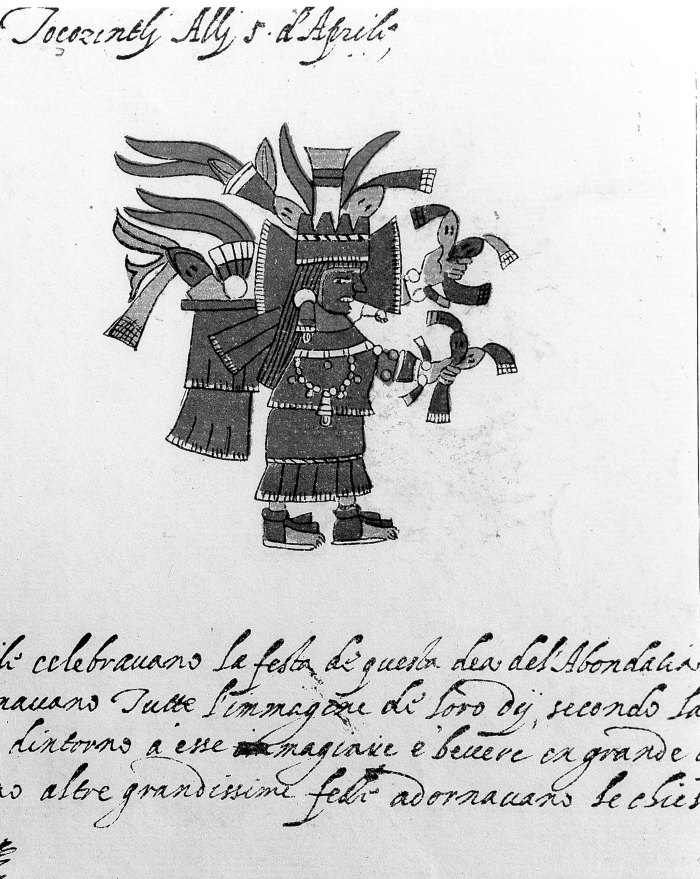 Tocozintli Alli 5. d'Aprile,
celebravano la festa de questa dea del'Abondatia
navano Tutte l'immagine de loro dij, secondo la
dintorno a esse magiare e bevere en grande
altre grandissime feste adornavano le chies